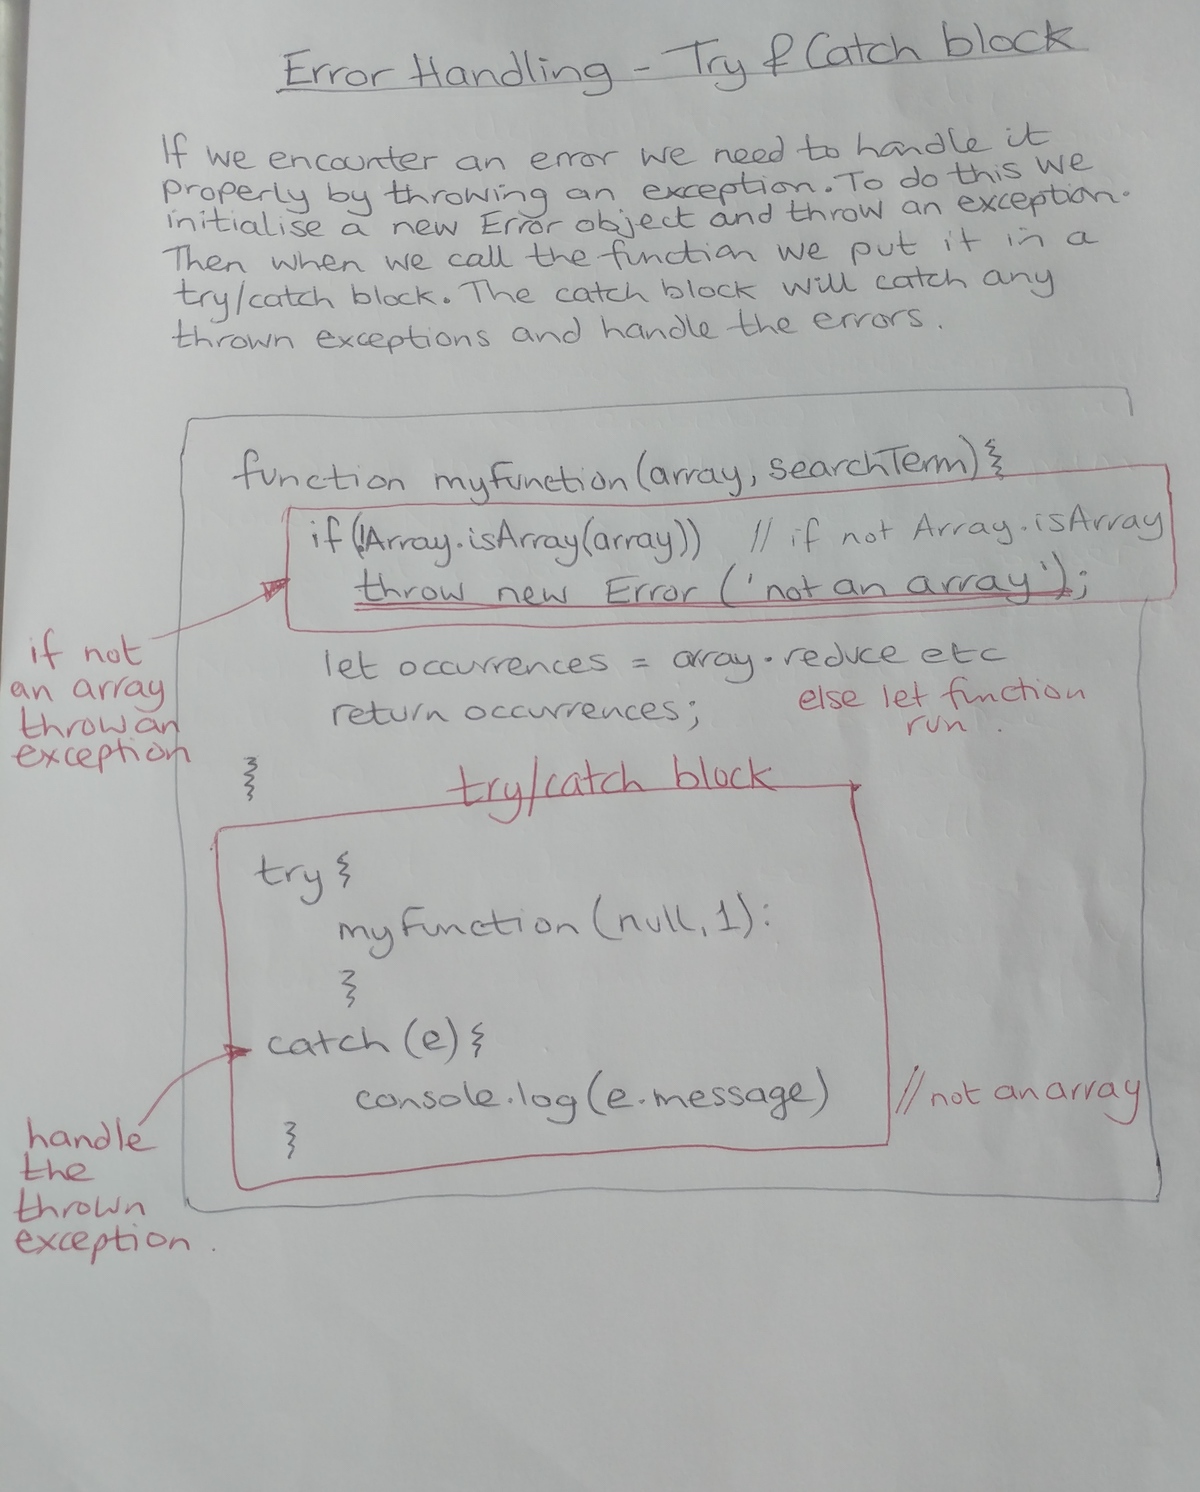 Error Handling - Try & Catch block
If we encounter an error we need to handle it
properly by throwing an exception. To do this we
initialise a new Error object and throw an exception.
Then when we call the function we put it in a
try/catch block. The catch block will catch any
thrown exceptions and handle the errors.
function myFunction(array, searchTerm){
if(!Array.isArray(array)) // if not Array.isArray
throw new Error ('not an array');
if not
an array
throw an
exception
let occurrences = array.reduce etc
return occurrences;
else let function
run.
}
try/catch block
try {
myFunction(null, 1):
}
catch (e) {
console.log(e.message) //not an array
}
handle
the
thrown
exception.